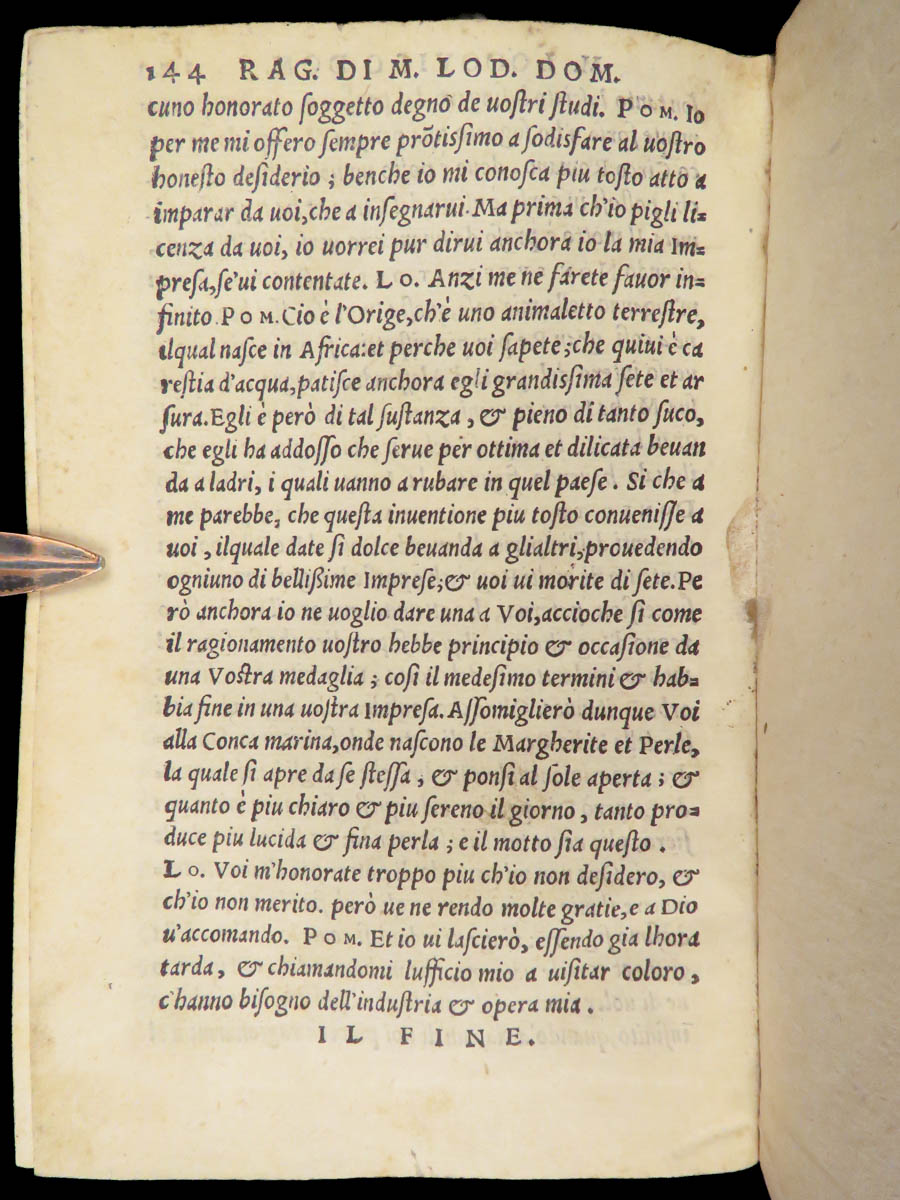 144 RAG. DI M. LOD. DOM.
cuno honorato ſoggetto degno de uoſtri ſtudi. POM. Io
per me mi offero ſempre prõtiſſimo a ſodisfare al uoſtro
honeſto deſiderio ; benche io mi conoſca piu toſto atto a
imparar da uoi, che a inſegnarui. Ma prima ch'io pigli li=
cenza da uoi, io uorrei pur dirui anchora io la mia Im=
preſa, ſe'ui contentate. LO. Anzi me ne farete fauor in=
finito. POM. Cio è l'Orige, ch'è uno animaletto terreſtre,
ilqual naſce in Africa: et perche uoi ſapete; che quiui è ca
reſtia d'acqua, patiſce anchora egli grandiſſima ſete et ar
ſura. Egli è però di tal ſuſtanza, & pieno di tanto ſuco,
che egli ha addoſſo che ſerue per ottima et dilicata beuan
da a ladri, i quali uanno a rubare in quel paeſe. Si che a
me parebbe, che queſta inuentione piu toſto conueniſſe a
uoi, ilquale date ſi dolce beuanda a glialtri, prouedendo
ogniuno di belliſſime Impreſe; & uoi ui morite di ſete. Pe
rò anchora io ne uoglio dare una a Voi, accioche ſi come
il ragionamento uoſtro hebbe principio & occaſione da
una Voſtra medaglia ; coſi il medeſimo termini & hab=
bia fine in una uoſtra Impreſa. Aſſomiglierò dunque Voi
alla Conca marina, onde naſcono le Margherite et Perle,
la quale ſi apre da ſe ſteſſa, & ponſi al ſole aperta ; &
quanto è piu chiaro & piu ſereno il giorno, tanto pro=
duce piu lucida & fina perla ; e il motto ſia queſto.
LO. Voi m'honorate troppo piu ch'io non deſidero, &
ch'io non merito. però ue ne rendo molte gratie, e a Dio
u'accomando. POM. Et io ui laſcierò, eſſendo gia lhora
tarda, & chiamandomi lufficio mio a uiſitar coloro,
c'hanno biſogno dell'induſtria & opera mia.
IL FINE.